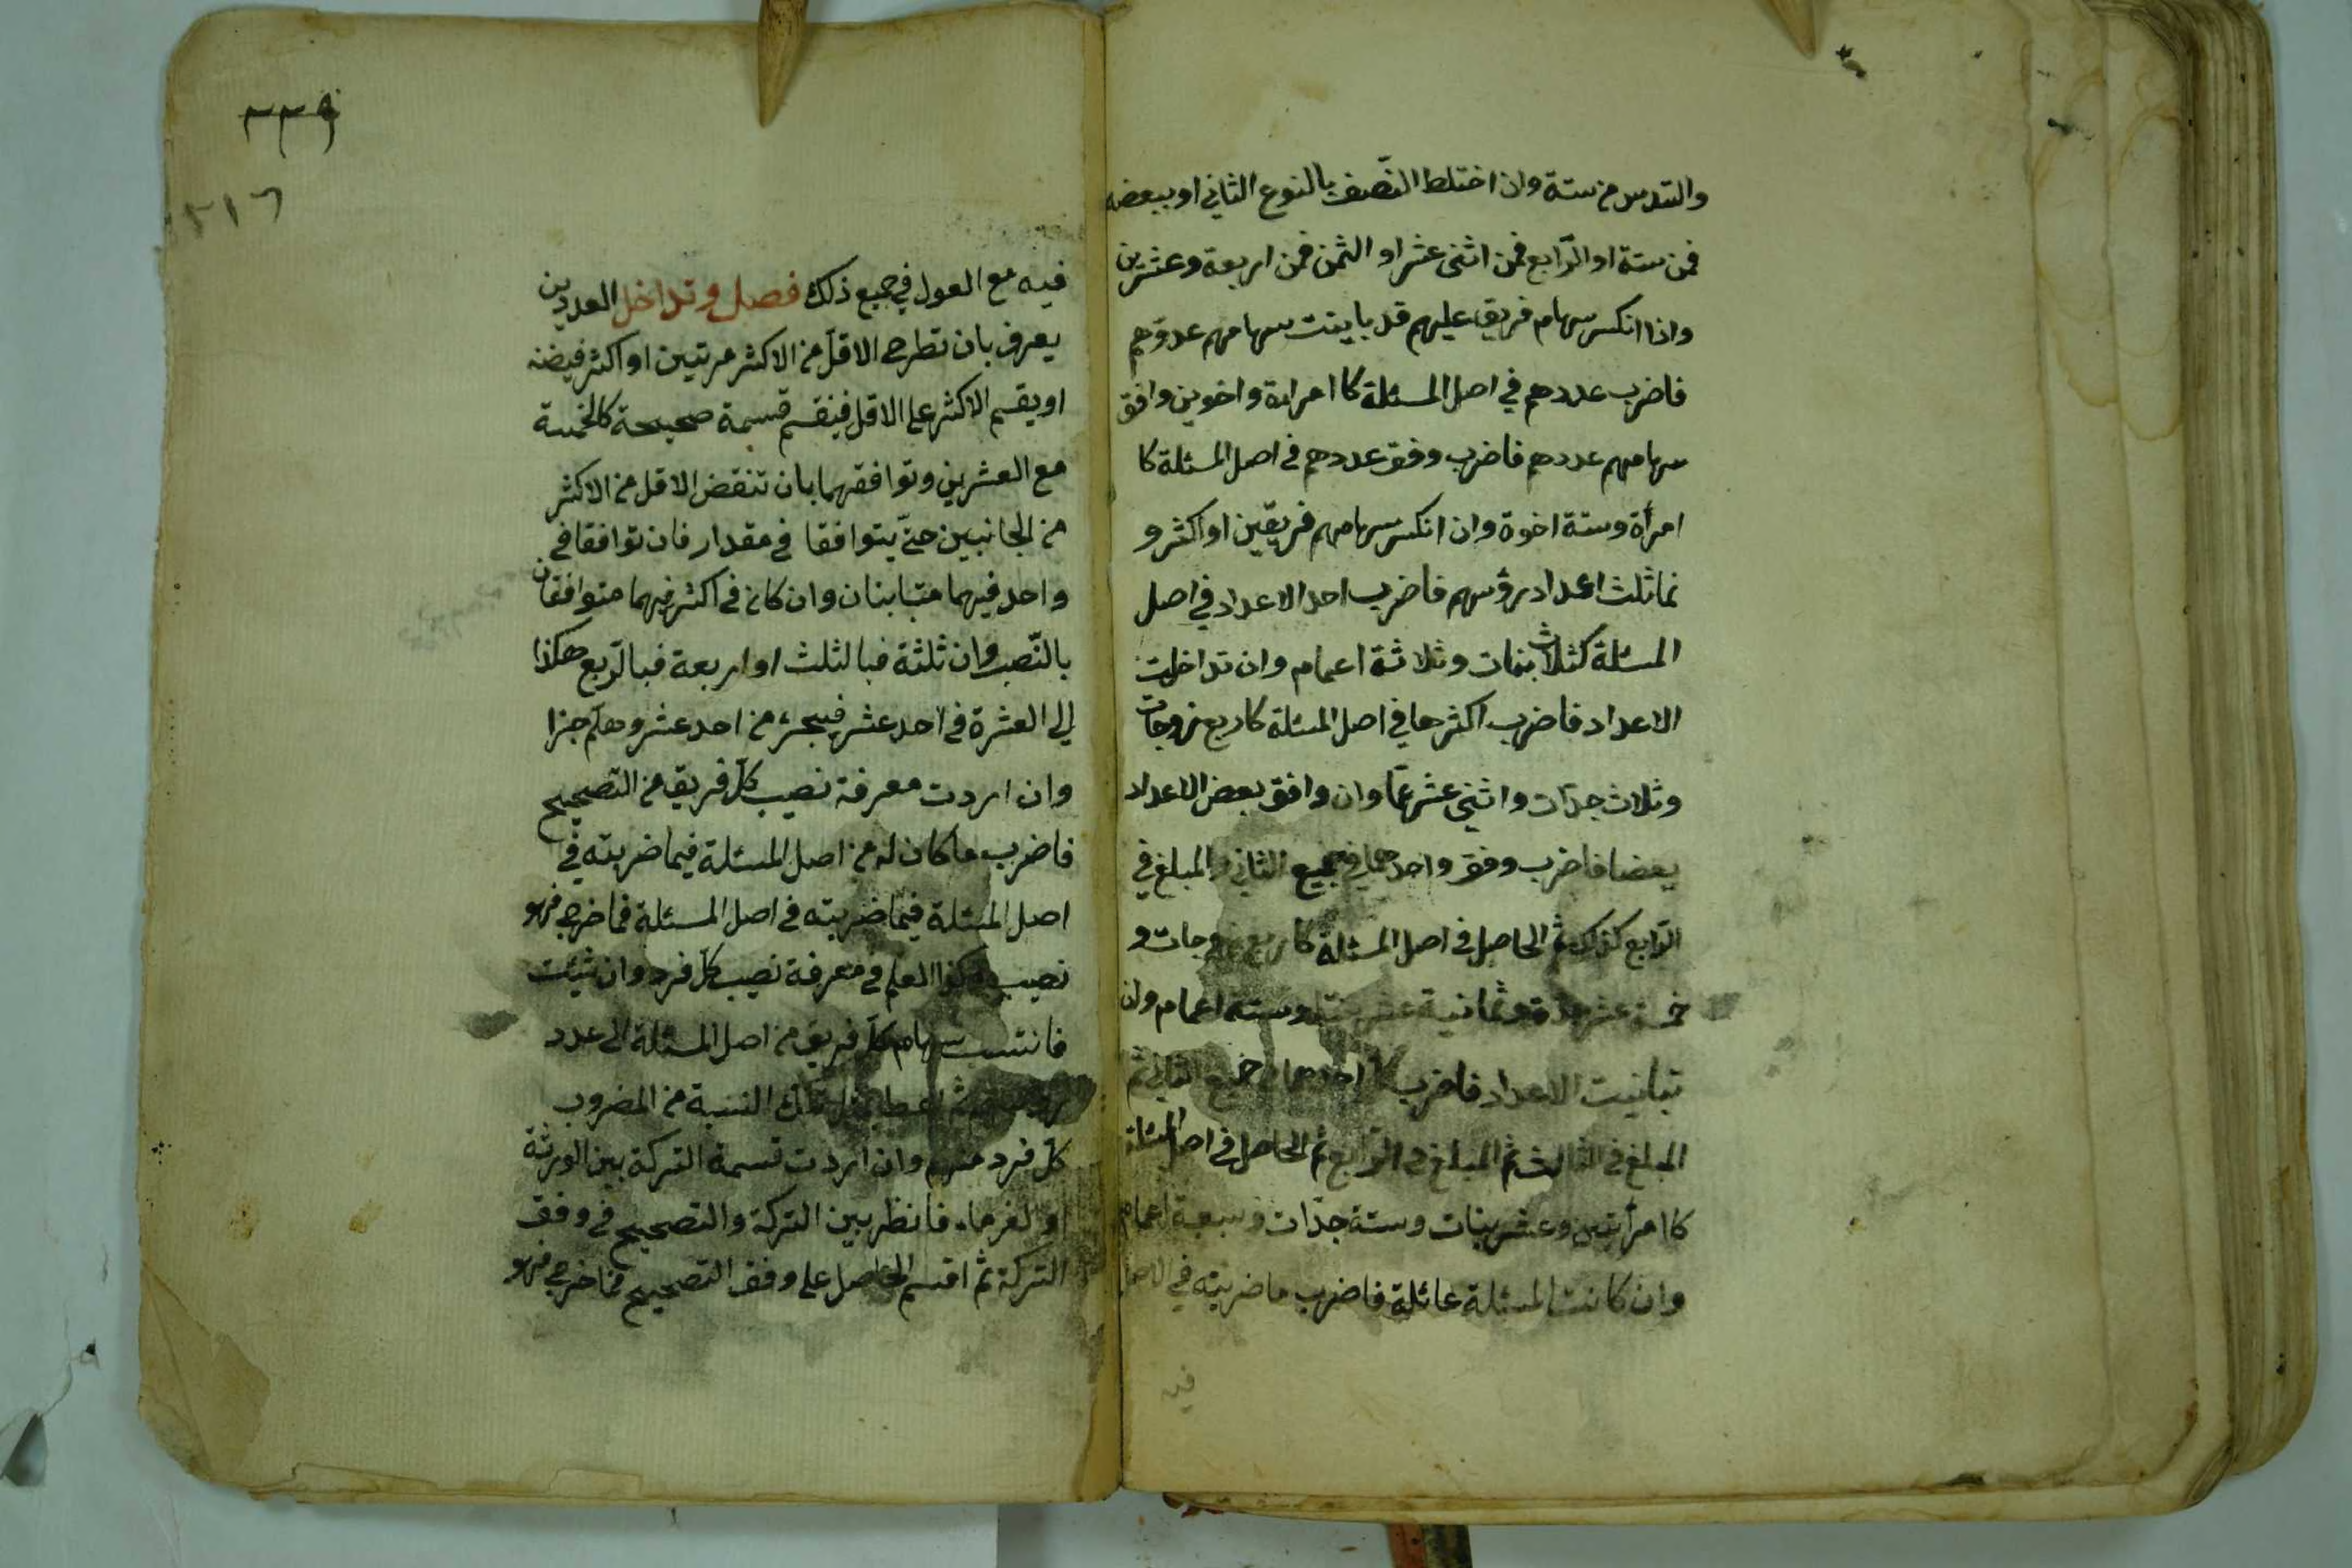 والسدس من ستة وان اختلط النّصف بالنوع الثاني او ببعضه
فمن ستة او الرّابع فمن اثنى عشر او الثمن فمن اربعة وعشرين
واذا انكسر سهام فريق عليهم قد باينت سهامهم عددهم
فاضرب عددهم في اصل المسئلة كا امراة واخوين وافق
سهامهم عددهم فاضرب وفق عددهم في اصل المسئلة كا
امرأة وستة اخوة وان انكسر سهامهم فريقين او اكثر و
تماثلت اعداد رؤسهم فاضرب احد الاعداد في اصل
المسئلة كثلاث بنات وثلاثة اعمام وان تداخلت
الاعداد فاضرب اكثرها في اصل المسئلة كاربع زوجات
وثلاث جدّات واثنى عشر عمّا وان وافق بعض الاعداد
بعضا فاضرب وفق واحدهما في جميع الثاني والمبلغ في
الرّابع كذلك ثم الحاصل في اصل المسئلة كاربع زوجات و
خمسة عشر جدة وثمانية عشر بنتا وستة اعمام وان
تباينت الاعداد فاضرب احدهما في جميع الثاني ثم
المبلغ في الثالث ثم المبلغ في الرّابع ثم الحاصل في اصل المسئلة
كا امرأتين وعشر بنات وستة جدّات وسبعة اعمام
وان كانت المسئلة عائلة فاضرب ما ضربته في الاصل
فيه
٣٣٩
٣١٦
فيه مع العول في جميع ذلك فصل وتداخل العددين
يعرف بان تطرح الاقلّ من الاكثر مرتين او اكثر فيضنه
او يقسم الاكثر على الاقل فينقسم قسمة صحيحة كالخمسة
مع العشرين وتوافقهما بان تنقض الاقل من الاكثر
من الجانبين حتّى يتوافقا في مقدار فان توافقا في
واحد فيهما متباينان وان كان في اكثر فيهما متوافقان
بالنّصب وان ثلثة فبالثلث او اربعة فبالرّبع هكذا
الى العشرة في احد عشر فيجزء من احد عشر وهلّم جزا
وان اردت معرفة نصيب كلّ فريق من التّصحيح
فاضرب ما كان له من اصل المسئلة فيما ضربته في
اصل المسئلة فيما ضربته في اصل المسئلة فما خرج فهو
نصيبه وكذا العلم في معرفة نصيب كلّ فرد وان شئت
فانتسب سهام كلّ فريق من اصل المسئلة الى عدد
ثم اعط بمثل تلك النسبة من المضروب
كلّ فرد منهم وان اردت قسمة التركة بين الورثة
او الغرماء فانظر بين التركة والتصحيح في وفق
التركة ثم اقسم الحاصل على وفق التصحيح فما خرج فهو